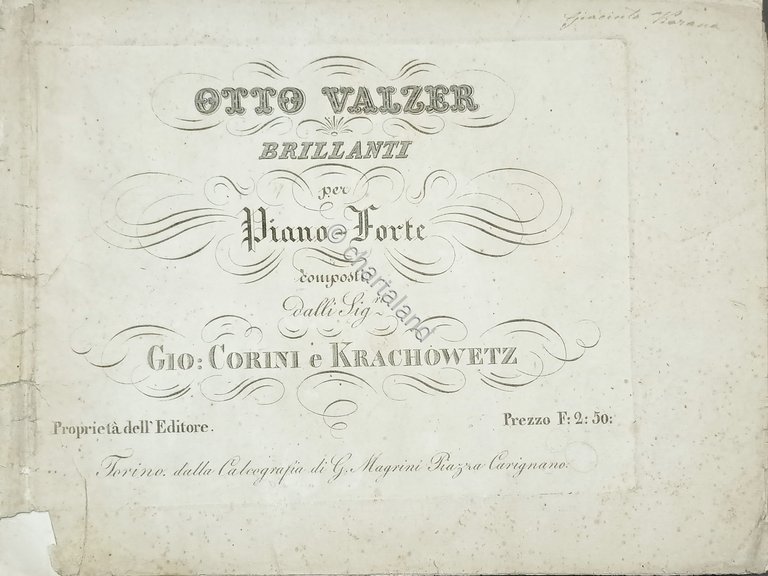 Giacinto
OTTO VALZER
BRILLANTI
per
Piano-Forte
composti
dalli Sig.ri
GIO: CORINI e KRACHOWETZ
Proprietà dell' Editore.
Prezzo F: 2: 50:
Torino. dalla Calcografia di G. Magrini Piazza Carignano.
© chartaland